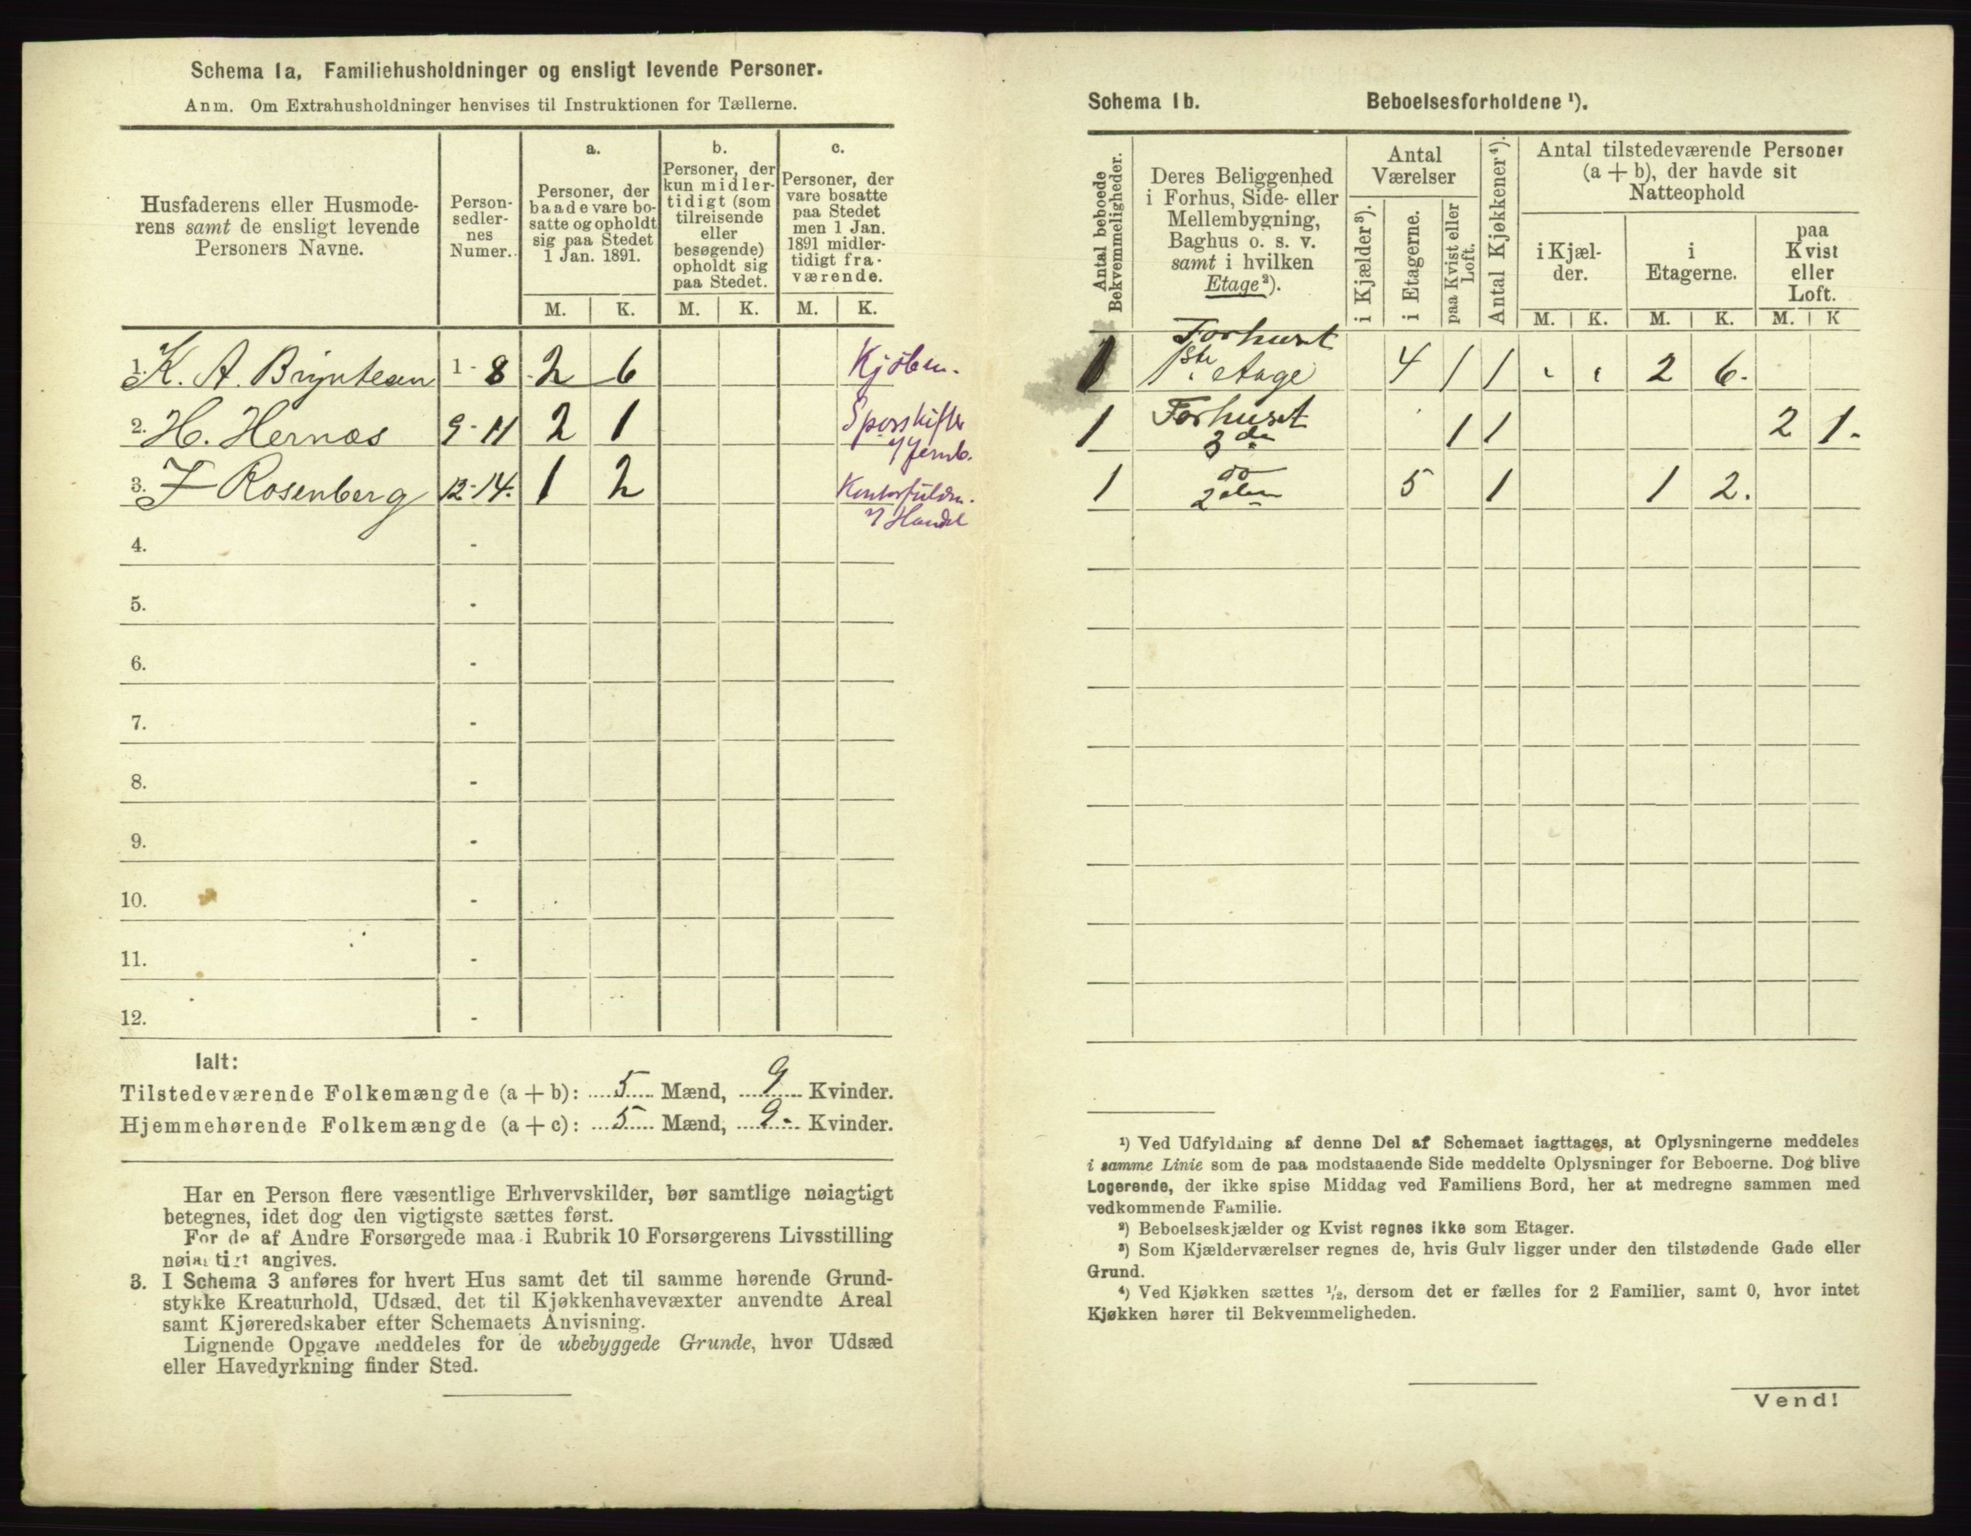 Schema 1a. Familiehusholdninger og ensligt levende Personer.
Anm. Om Extrahusholdninger henvises til Instruktionen for Tællerne.
Husfaderens eller Husmode-
rens samt de ensligt levende
Personers Navne.
Person-
sedler-
nes
Numer.
a.
Personer, der
baade vare bo-
satte og opholdt
sig paa Stedet
1 Jan. 1891.
b.
Personer, der
kun midler-
tidigt (som
tilreisende
eller
besøgende)
opholdt sig
paa Stedet.
c.
Personer, der
vare bosatte
paa Stedet
men 1 Jan.
1891 midler-
tidigt fra-
værende.
M. K. M. K. M. K.
1. K. A. Bryntesen 1-8 2 6 Kjøbm.
2. H. Hernæs 9-11 2 1 Sporskifter
v/ Jernb.
3. F Rosenberg 12-14. 1 2 Kontorfuldm.
v/ Handel
4. -
5. -
6. -
7. -
8. -
9. -
10. -
11. -
12. -
Ialt:
Tilstedeværende Folkemængde (a+b): 5 Mænd, 9 Kvinder.
Hjemmehørende Folkemængde (a+c): 5 Mænd, 9. Kvinder.
Har en Person flere væsentlige Erhvervskilder, bør samtlige nøiagtigt
betegnes, idet dog den vigtigste sættes først.
For de af Andre Forsørgede maa i Rubrik 10 Forsørgerens Livsstilling
nøiagtigt angives.
3. I Schema 3 anføres for hvert Hus samt det til samme hørende Grund-
stykke Kreaturhold, Udsæd, det til Kjøkkenhavevæxter anvendte Areal
samt Kjøreredskaber efter Schemaets Anvisning.
Lignende Opgave meddeles for de ubebyggede Grunde, hvor Udsæd
eller Havedyrkning finder Sted.
Schema 1b. Beboelsesforholdene ¹).
Antal beboede
Bekvemmeligheder.
Deres Beliggenhed
i Forhus, Side- eller
Mellembygning,
Baghus o. s. v.
samt i hvilken
Etage²).
Antal
Værelser
i Kjælder³).
i Etagerne.
paa Kvist eller
Loft.
Antal Kjøkkener⁴).
Antal tilstedeværende Personer
(a + b), der havde sit
Natteophold
i Kjæl-
der.
i
Etagerne.
paa
Kvist
eller
Loft.
M. K. M. K. M. K
Forhuset
1 1ste etage 4 1 1 2 6.
1 Forhuset 1 1 2 1.
3de
1 do 5 1 1 2.
2den
¹) Ved Udfyldning af denne Del af Schemaet iagttages, at Oplysningerne meddeles
i samme Linie som de paa modstaaende Side meddelte Oplysninger for Beboerne. Dog blive
Logerende, der ikke spise Middag ved Familiens Bord, her at medregne sammen med
vedkommende Familie.
²) Beboelseskjælder og Kvist regnes ikke som Etager.
³) Som Kjælderværelser regnes de, hvis Gulv ligger under den tilstødende Gade eller
Grund.
⁴) Ved Kjøkken sættes ½, dersom det er fælles for 2 Familier, samt 0, hvor intet
Kjøkken hører til Bekvemmeligheden.
Vend!